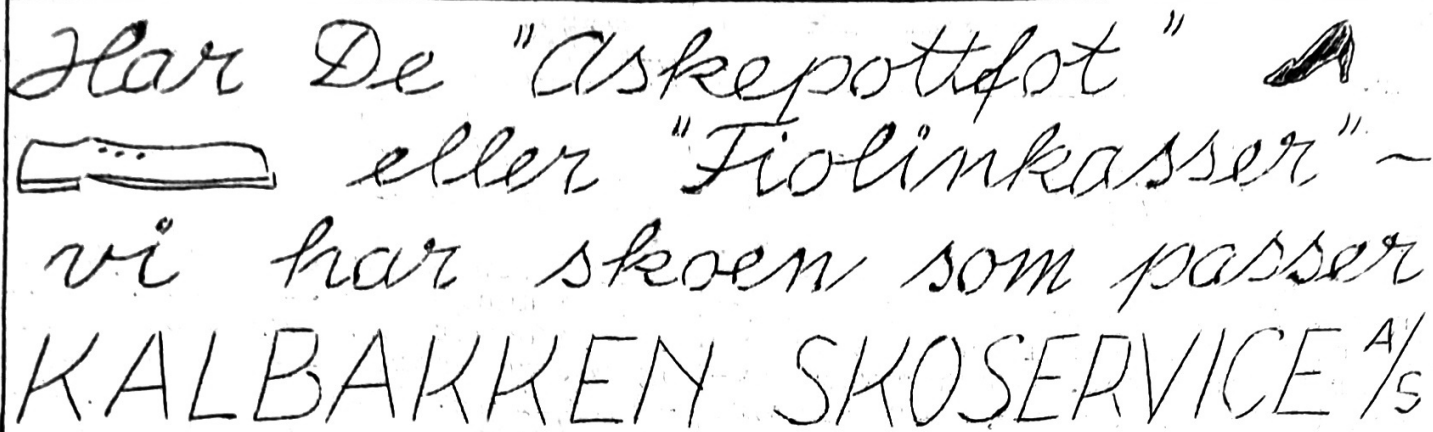 Har De "Askepottfot"
eller "Fiolinkasser" -
vi har skoen som passer
KALBAKKEN SKOSERVICE A/S